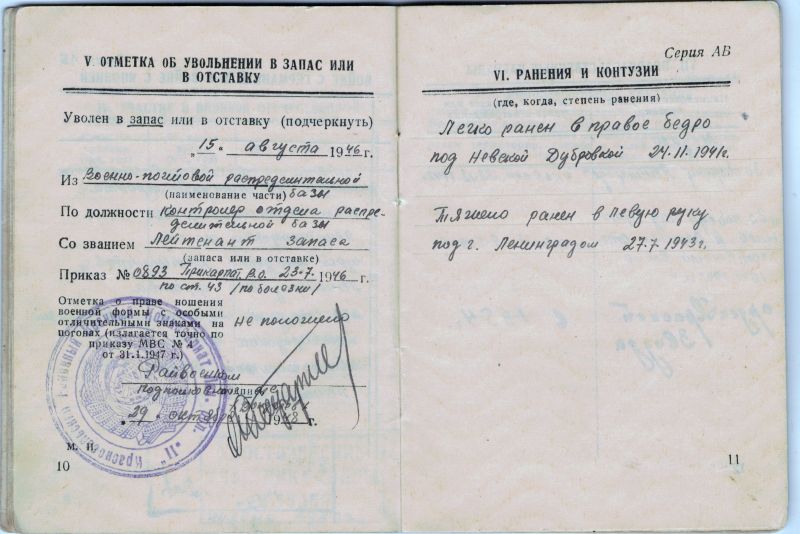 V. ОТМЕТКА ОБ УВОЛЬНЕНИИ В ЗАПАС ИЛИ
В ОТСТАВКУ
Уволен в запас или в отставку (подчеркнуть)
„15" августа 1946 г.
Из Военно-почтовой распределительной
(наименование части) базы
По должности контролер отдела распре-
делительной базы
Со званием Лейтенант запаса
(запаса или в отставке)
Приказ № 0893 Прикарпат. В.О. 23-7. 1946 г.
по ст. 43 /по болезни/
Отметка о праве ношения
военной формы с особыми
отличительными знаками на
погонах (излагается точно по
приказу МВС № 4
от 31.1.1947 г.)
не положено
Райвоенком
подполковник
„29" октября 1948 г.
М. П.
10
Серия АВ
VI. РАНЕНИЯ И КОНТУЗИИ
(где, когда, степень ранения)
Легко ранен в правое бедро
под Невской Дубровкой 24.11.1941г.
Тяжело ранен в левую руку
под г. Ленинградом 27.7.1943г.
11